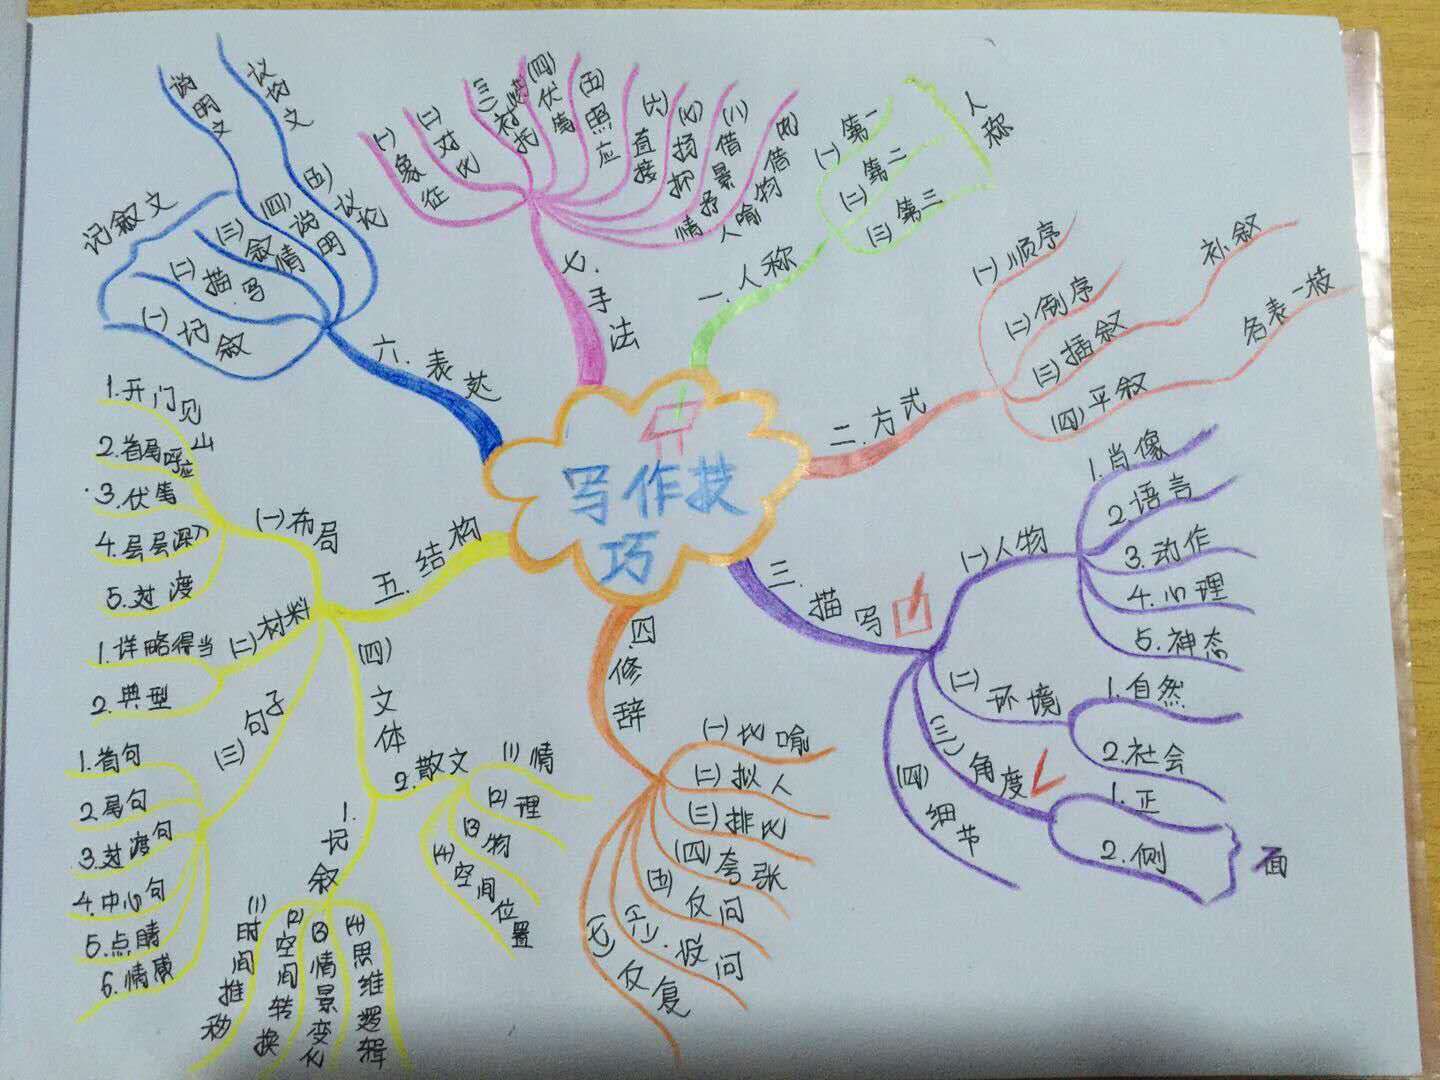 写作技
巧
一.人称
(一)第一
(二)第二
(三)第三
人称
二.方式
(一)顺序
(二)倒序
(三)插叙
补叙
(四)平叙
各表一枝
三.描写
(一)人物
1.肖像
2.语言
3.动作
4.心理
5.神态
(二)环境
1.自然
2.社会
(三)角度
1.正
2.侧
面
(四)细节
四.修辞
(一)比喻
(二)拟人
(三)排比
(四)夸张
(五)反问
(六).设问
(七)反复
五.结构
(一)布局
1.开门见山
2.首尾呼应
3.伏笔
4.层层深入
5.过渡
(二)材料
1.详略得当
2.典型
(三)句子
1.首句
2.尾句
3.过渡句
4.中心句
5.点睛
6.情感
(四)文体
1.记叙
(1)时间推移
(2)空间转换
(3)情景变化
(4)思维逻辑
2.散文
(1)情
(2)理
(3)物
(4)空间位置
六.表达
(一)记叙
(二)描写
(三)叙情
(四)说明
(五)议论
记叙文
说明文
议论文
七.手法
(一)象征
(二)对比
(三)衬托
(四)伏笔
(五)照应
(六)直接
(七)扬抑
(八)借景抒情
(九)借物喻人